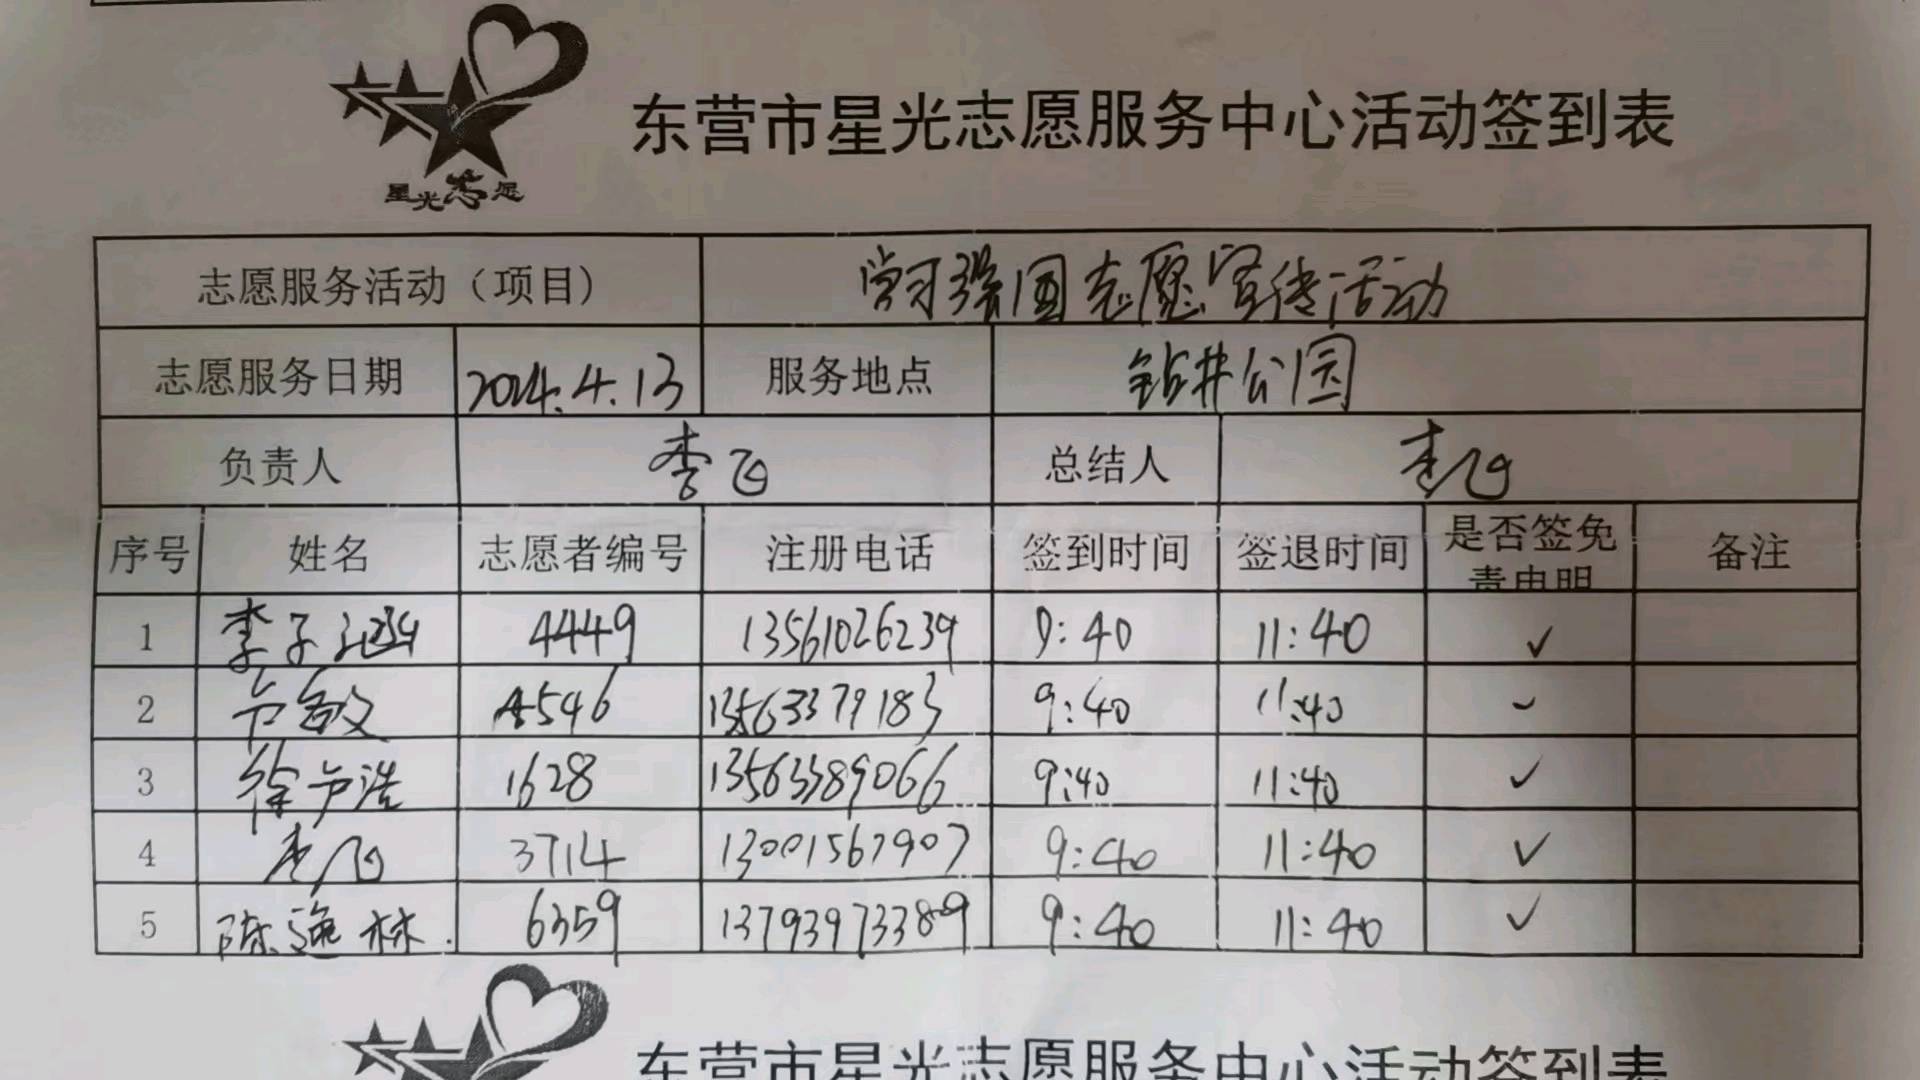 星光志愿
东营市星光志愿服务中心活动签到表
志愿服务活动（项目） 学习强国志愿宣传活动
志愿服务日期 2024.4.13 服务地点 钻井公园
负责人 李飞 总结人 李飞
序号 姓名 志愿者编号 注册电话 签到时间 签退时间 是否签免责声明 备注
1 李子涵 4449 13561026239 9:40 11:40 ✓
2 4546 13563379183 9:40 11:40
3 徐 浩 1628 13563389066 9:40 11:40 ✓
4 李飞 3714 13001567907 9:40 11:40 ✓
5 陈 林 6359 13793973389 9:40 11:40 ✓
东营市星光志愿服务中心活动签到表